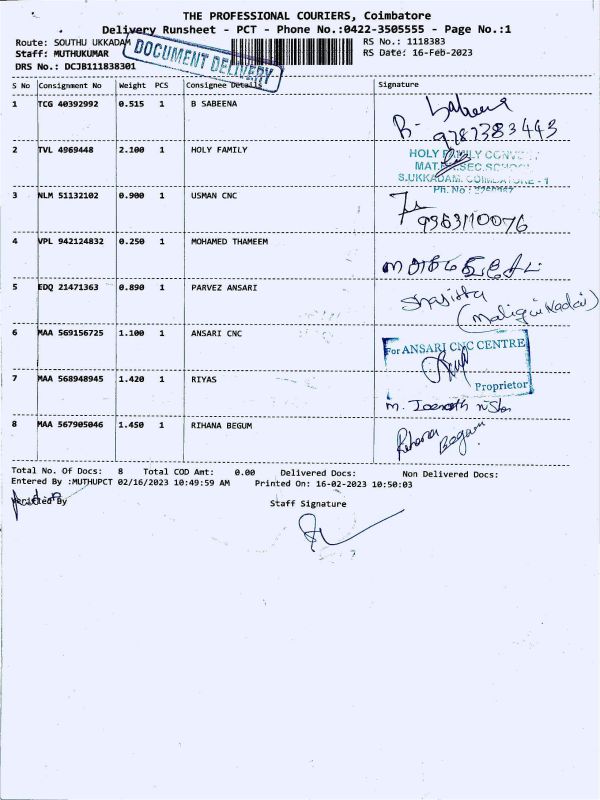 THE PROFESSIONAL COURIERS, Coimbatore
Delivery Runsheet - PCT - Phone No.:0422-3505555 - Page No.:1
Route: SOUTHU UKKADAM
RS No.: 1118383
Staff: MUTHUKUMAR
RS Date: 16-Feb-2023
DRS No.: DCJB111838301
DOCUMENT DELIVERY
S No Consignment No Weight PCS Consignee Details Signature
1 TCG 40392992 0.515 1 B SABEENA
B. Sabeena
9787383443
2 TVL 4969448 2.100 1 HOLY FAMILY
HOLY FAMILY CONVENT
MAT.HR.SEC.SCHOOL
S.UKKADAM, COIMBATORE - 1
Ph. No :
3 NLM 51132102 0.900 1 USMAN CNC
9363110076
4 VPL 942124832 0.250 1 MOHAMED THAMEEM
5 EDQ 21471363 0.890 1 PARVEZ ANSARI
Shajitha
(Maligai Kadai)
6 MAA 569156725 1.100 1 ANSARI CNC
For ANSARI CNC CENTRE
Proprietor
7 MAA 568948945 1.420 1 RIYAS
8 MAA 567905046 1.450 1 RIHANA BEGUM
Rehana Begam
Total No. Of Docs: 8 Total COD Amt: 0.00 Delivered Docs: Non Delivered Docs:
Entered By :MUTHUPCT 02/16/2023 10:49:59 AM Printed On: 16-02-2023 10:50:03
Verified By Staff Signature